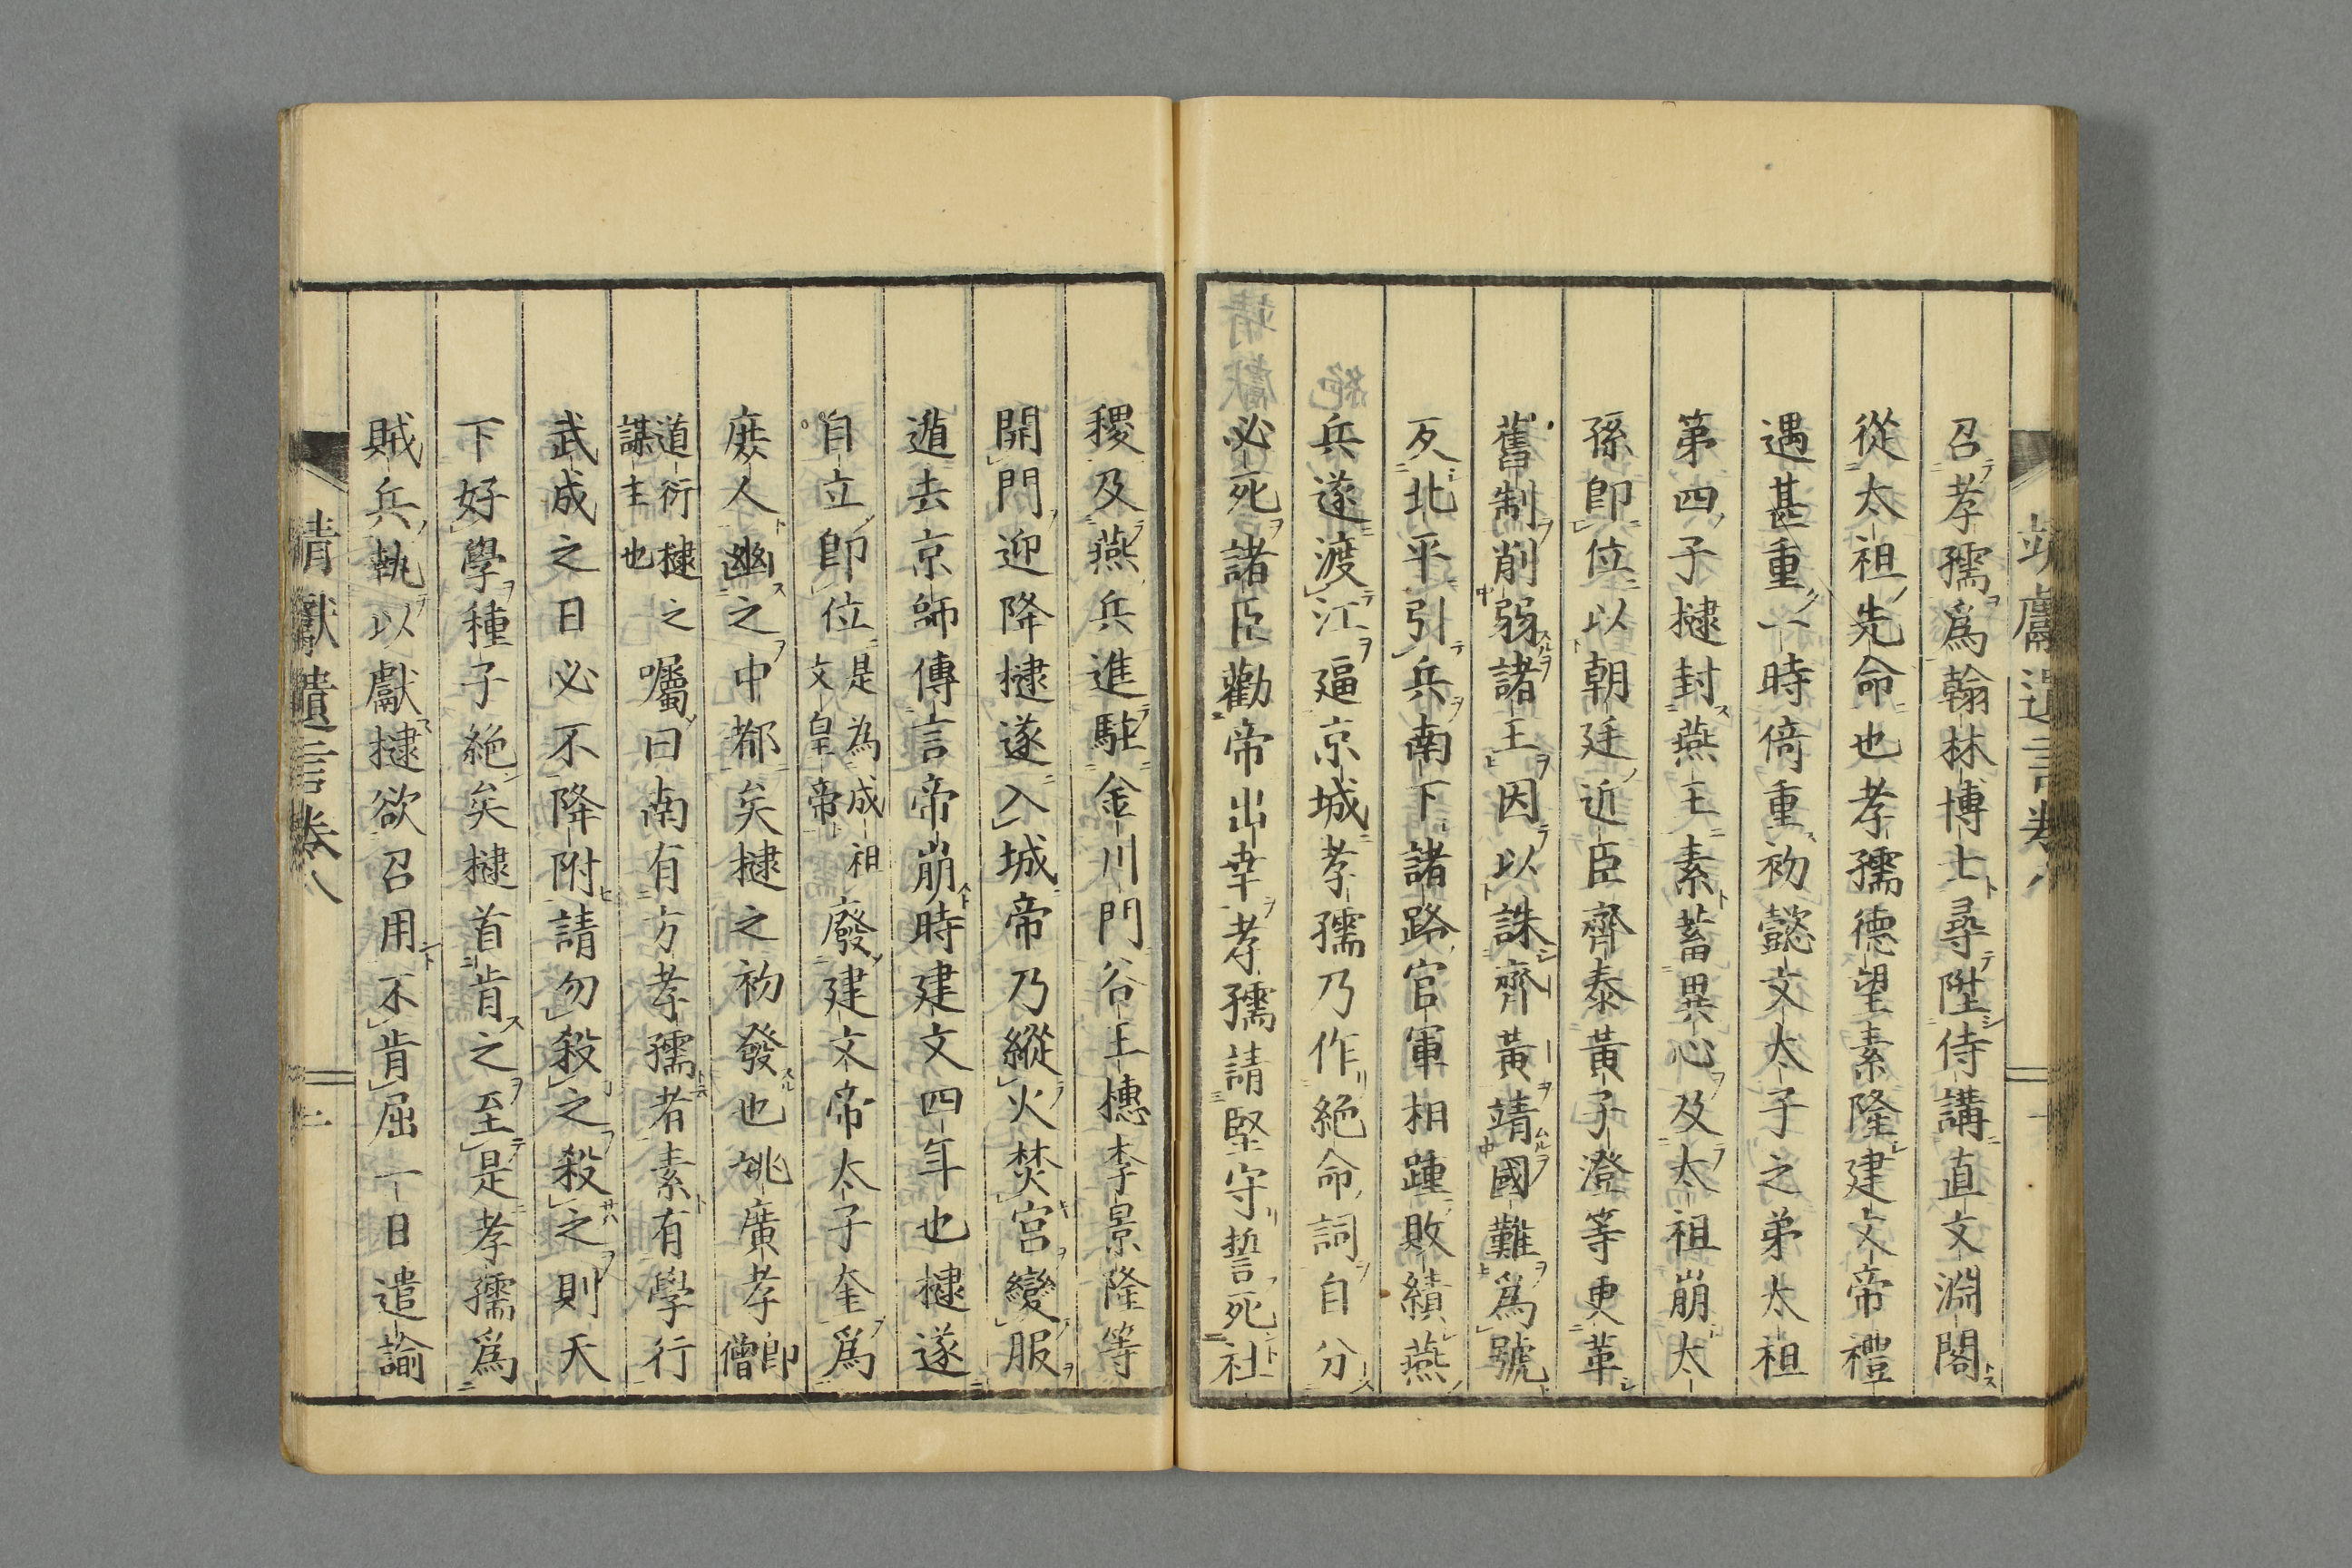 靖獻遺言卷八
召孝孺爲翰林博士尋陞侍講直文淵閣
從太祖先命也孝孺德望素隆建文帝禮
遇甚重一時倚重初懿文太子之弟太祖
第四子㨗封燕王素蓄異心及太祖崩太
孫卽位以朝廷近臣齊泰黃子澄等更革
舊制削弱諸王因以誅齊黃靖國難爲號
反北平引兵南下諸路官軍相踵敗績燕
兵遂渡江逼京城孝孺乃作絕命詞自分
必死諸臣勸帝出幸孝孺請堅守誓死社
稷及燕兵進駐金川門谷王橞李景隆等
開門迎降㨗遂入城帝乃縱火焚宮變服
遁去京師傳言帝崩時建文四年也㨗遂
自立卽位是為成祖文皇帝廢建文帝太子奎爲
庶人幽之中都矣㨗之初發也姚廣孝卽僧
道衍㨗謀主也之囑曰南有方孝孺者素有學行
武成之日必不降附請勿殺之殺之則天
下好學種子絕矣㨗首肯之至是孝孺爲
賊兵執以獻㨗欲召用不肯屈一日遣諭
靖獻遺言卷八